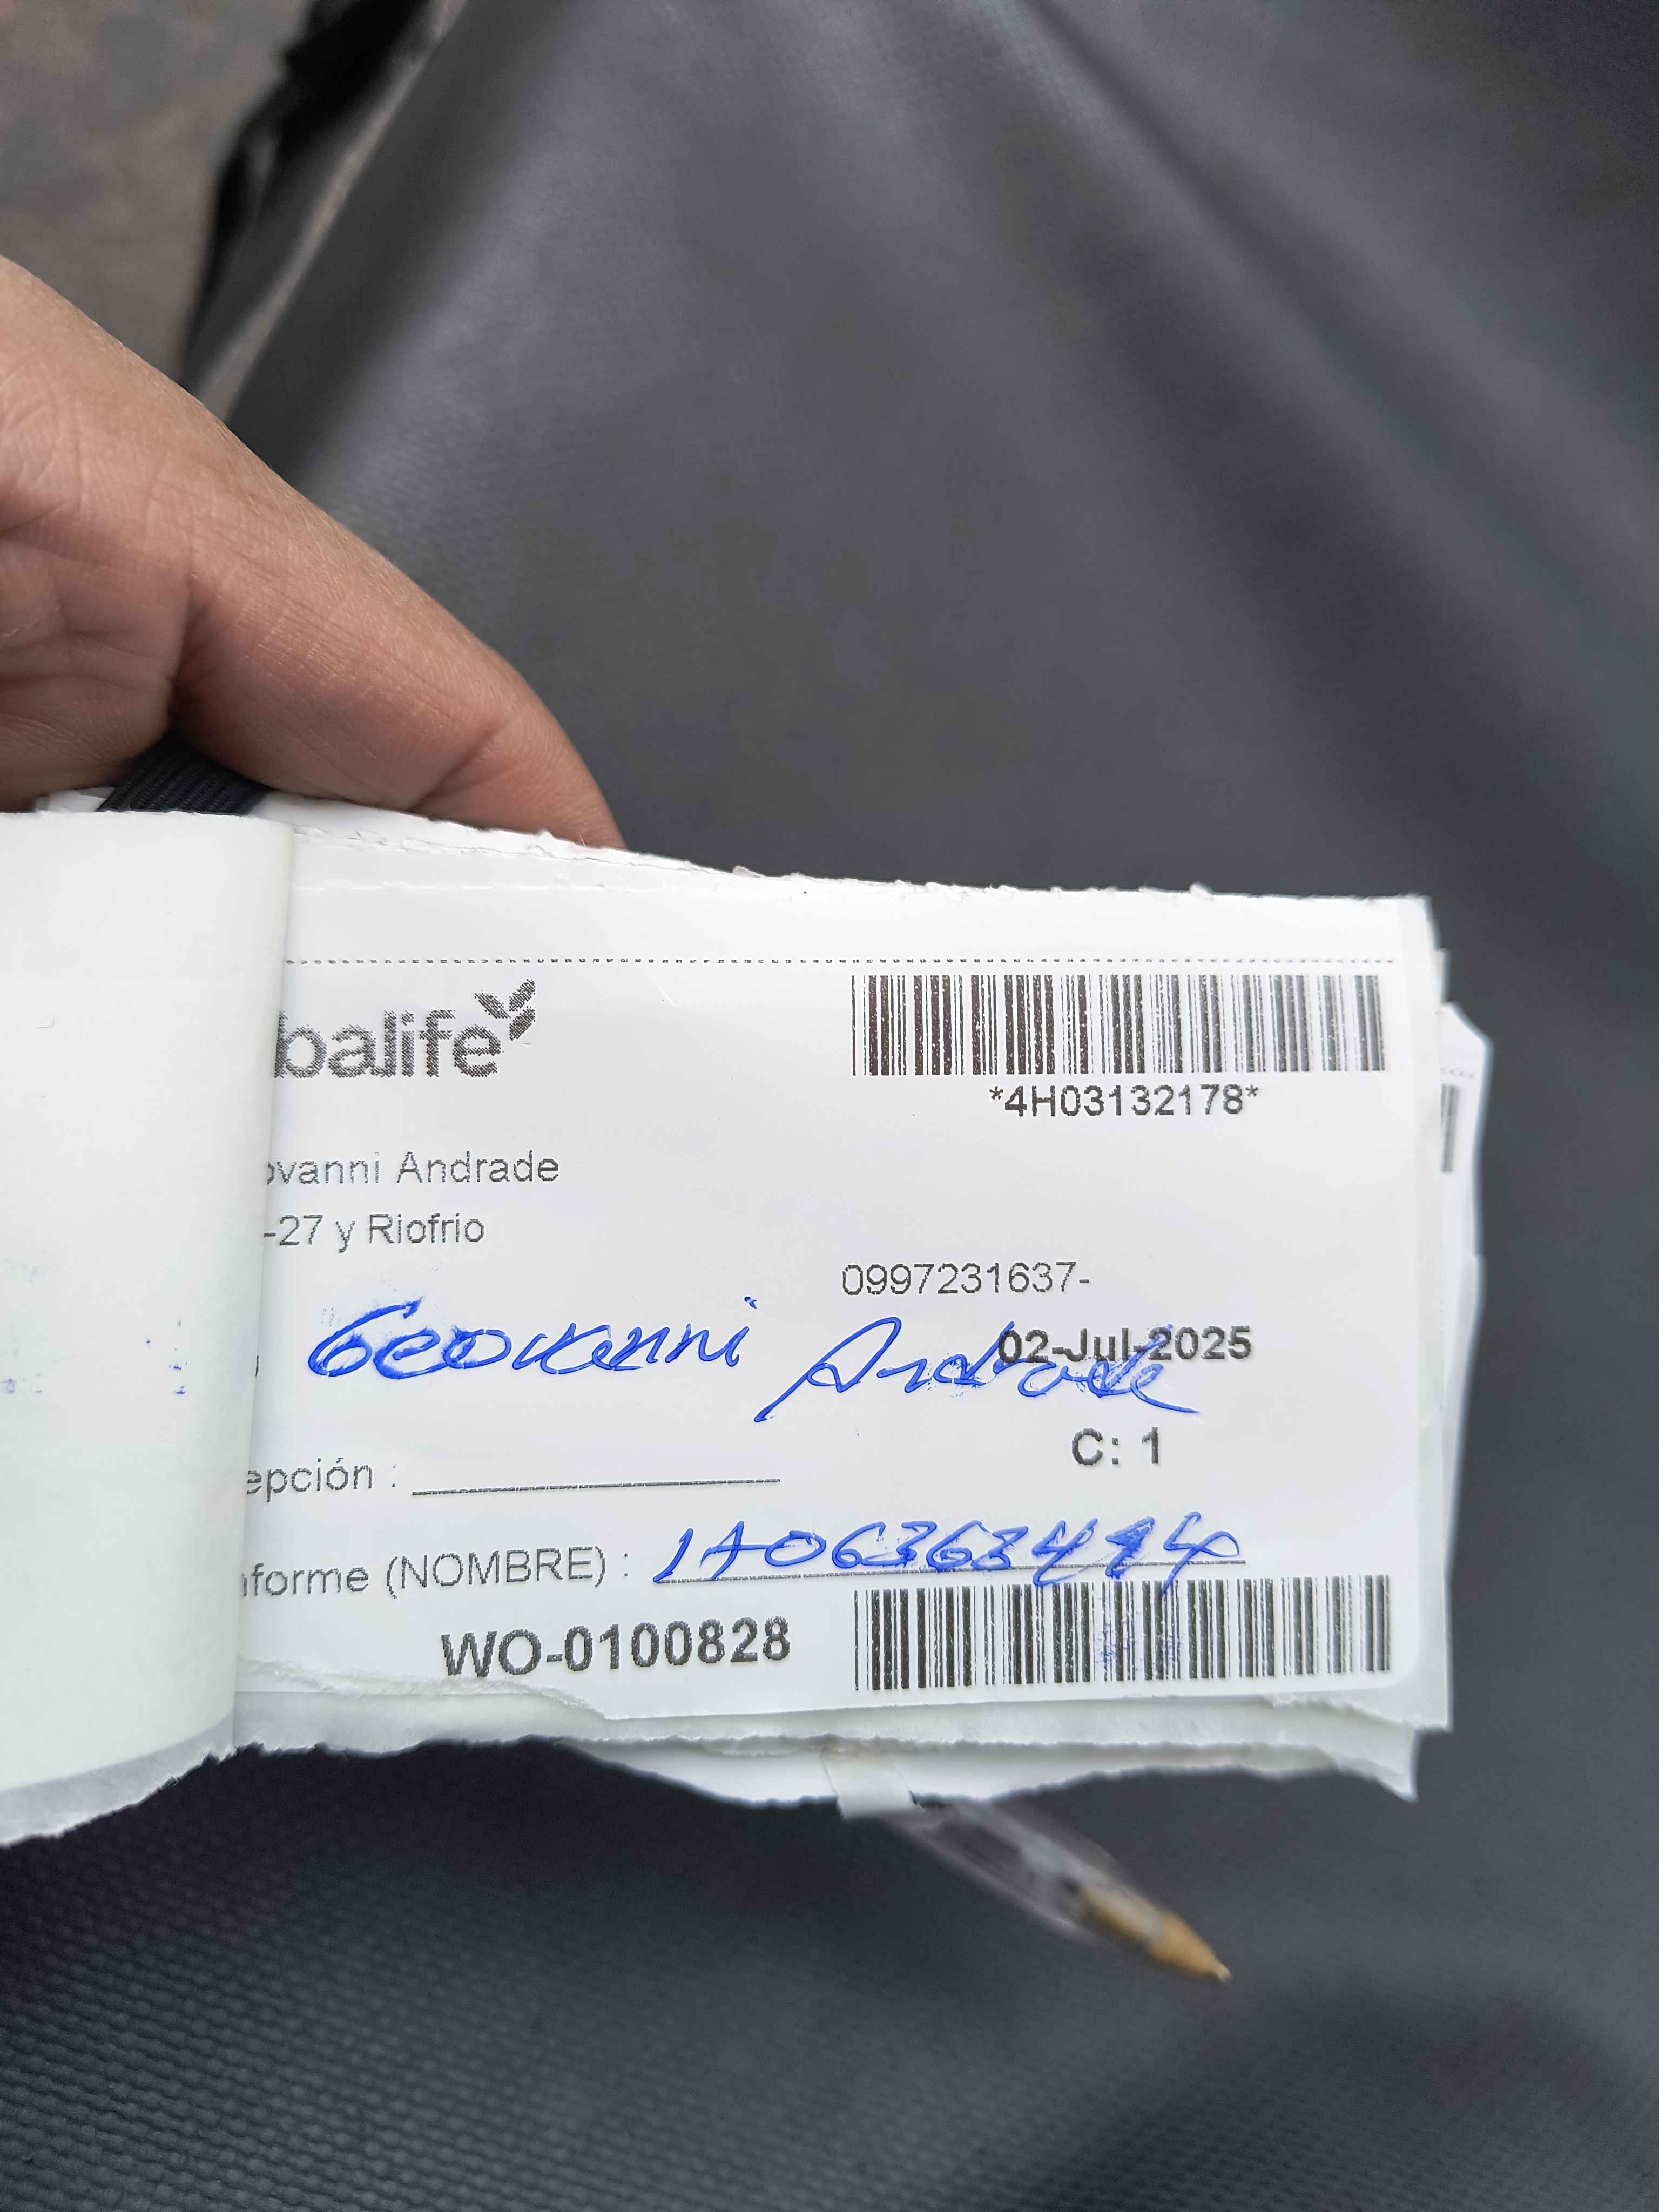 balife
*4H03132178*
ovanni Andrade
-27 y Riofrio
0997231637-
02-Jul-2025
Geovanni Andrade
C: 1
epción :
nforme (NOMBRE) :
WO-0100828